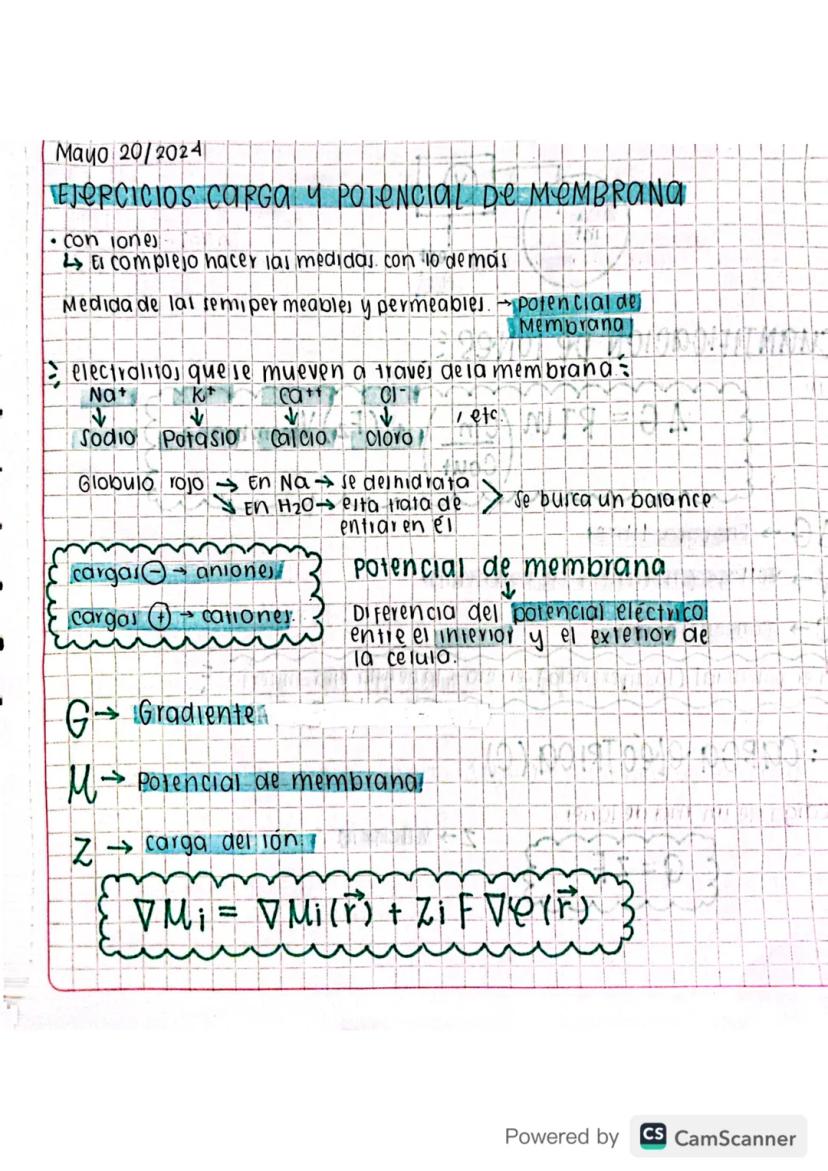 Mayo 20/2024
EJERCICIOS CARGA Y POTENCIAL DE MEMBRANA
• con iones
↳ Es complejo hacer las medidas con lo demás
Medida de las semipermeables y permeables. → Potencial de
Membrana
electrolitos que se mueven a través de la membrana:
Na+ K+ Ca++ Cl-
↓ ↓ ↓ ↓ , etc.
Sodio Potasio Calcio Cloro
Globulo rojo → En Na → se deshidrata
↘ En H₂O → esta trata de > se busca un balance
entrar en él
cargas ⊖ → aniones
cargas ⊕ → cationes
Potencial de membrana
↓
Diferencia del potencial eléctrico
entre el interior y el exterior de
la célula.
G → Gradiente
M → Potencial de membrana
Z → carga del ión.
∇Mi = ∇Mi(r⃗) + Zi F ∇φ(r⃗)
Powered by CS CamScanner